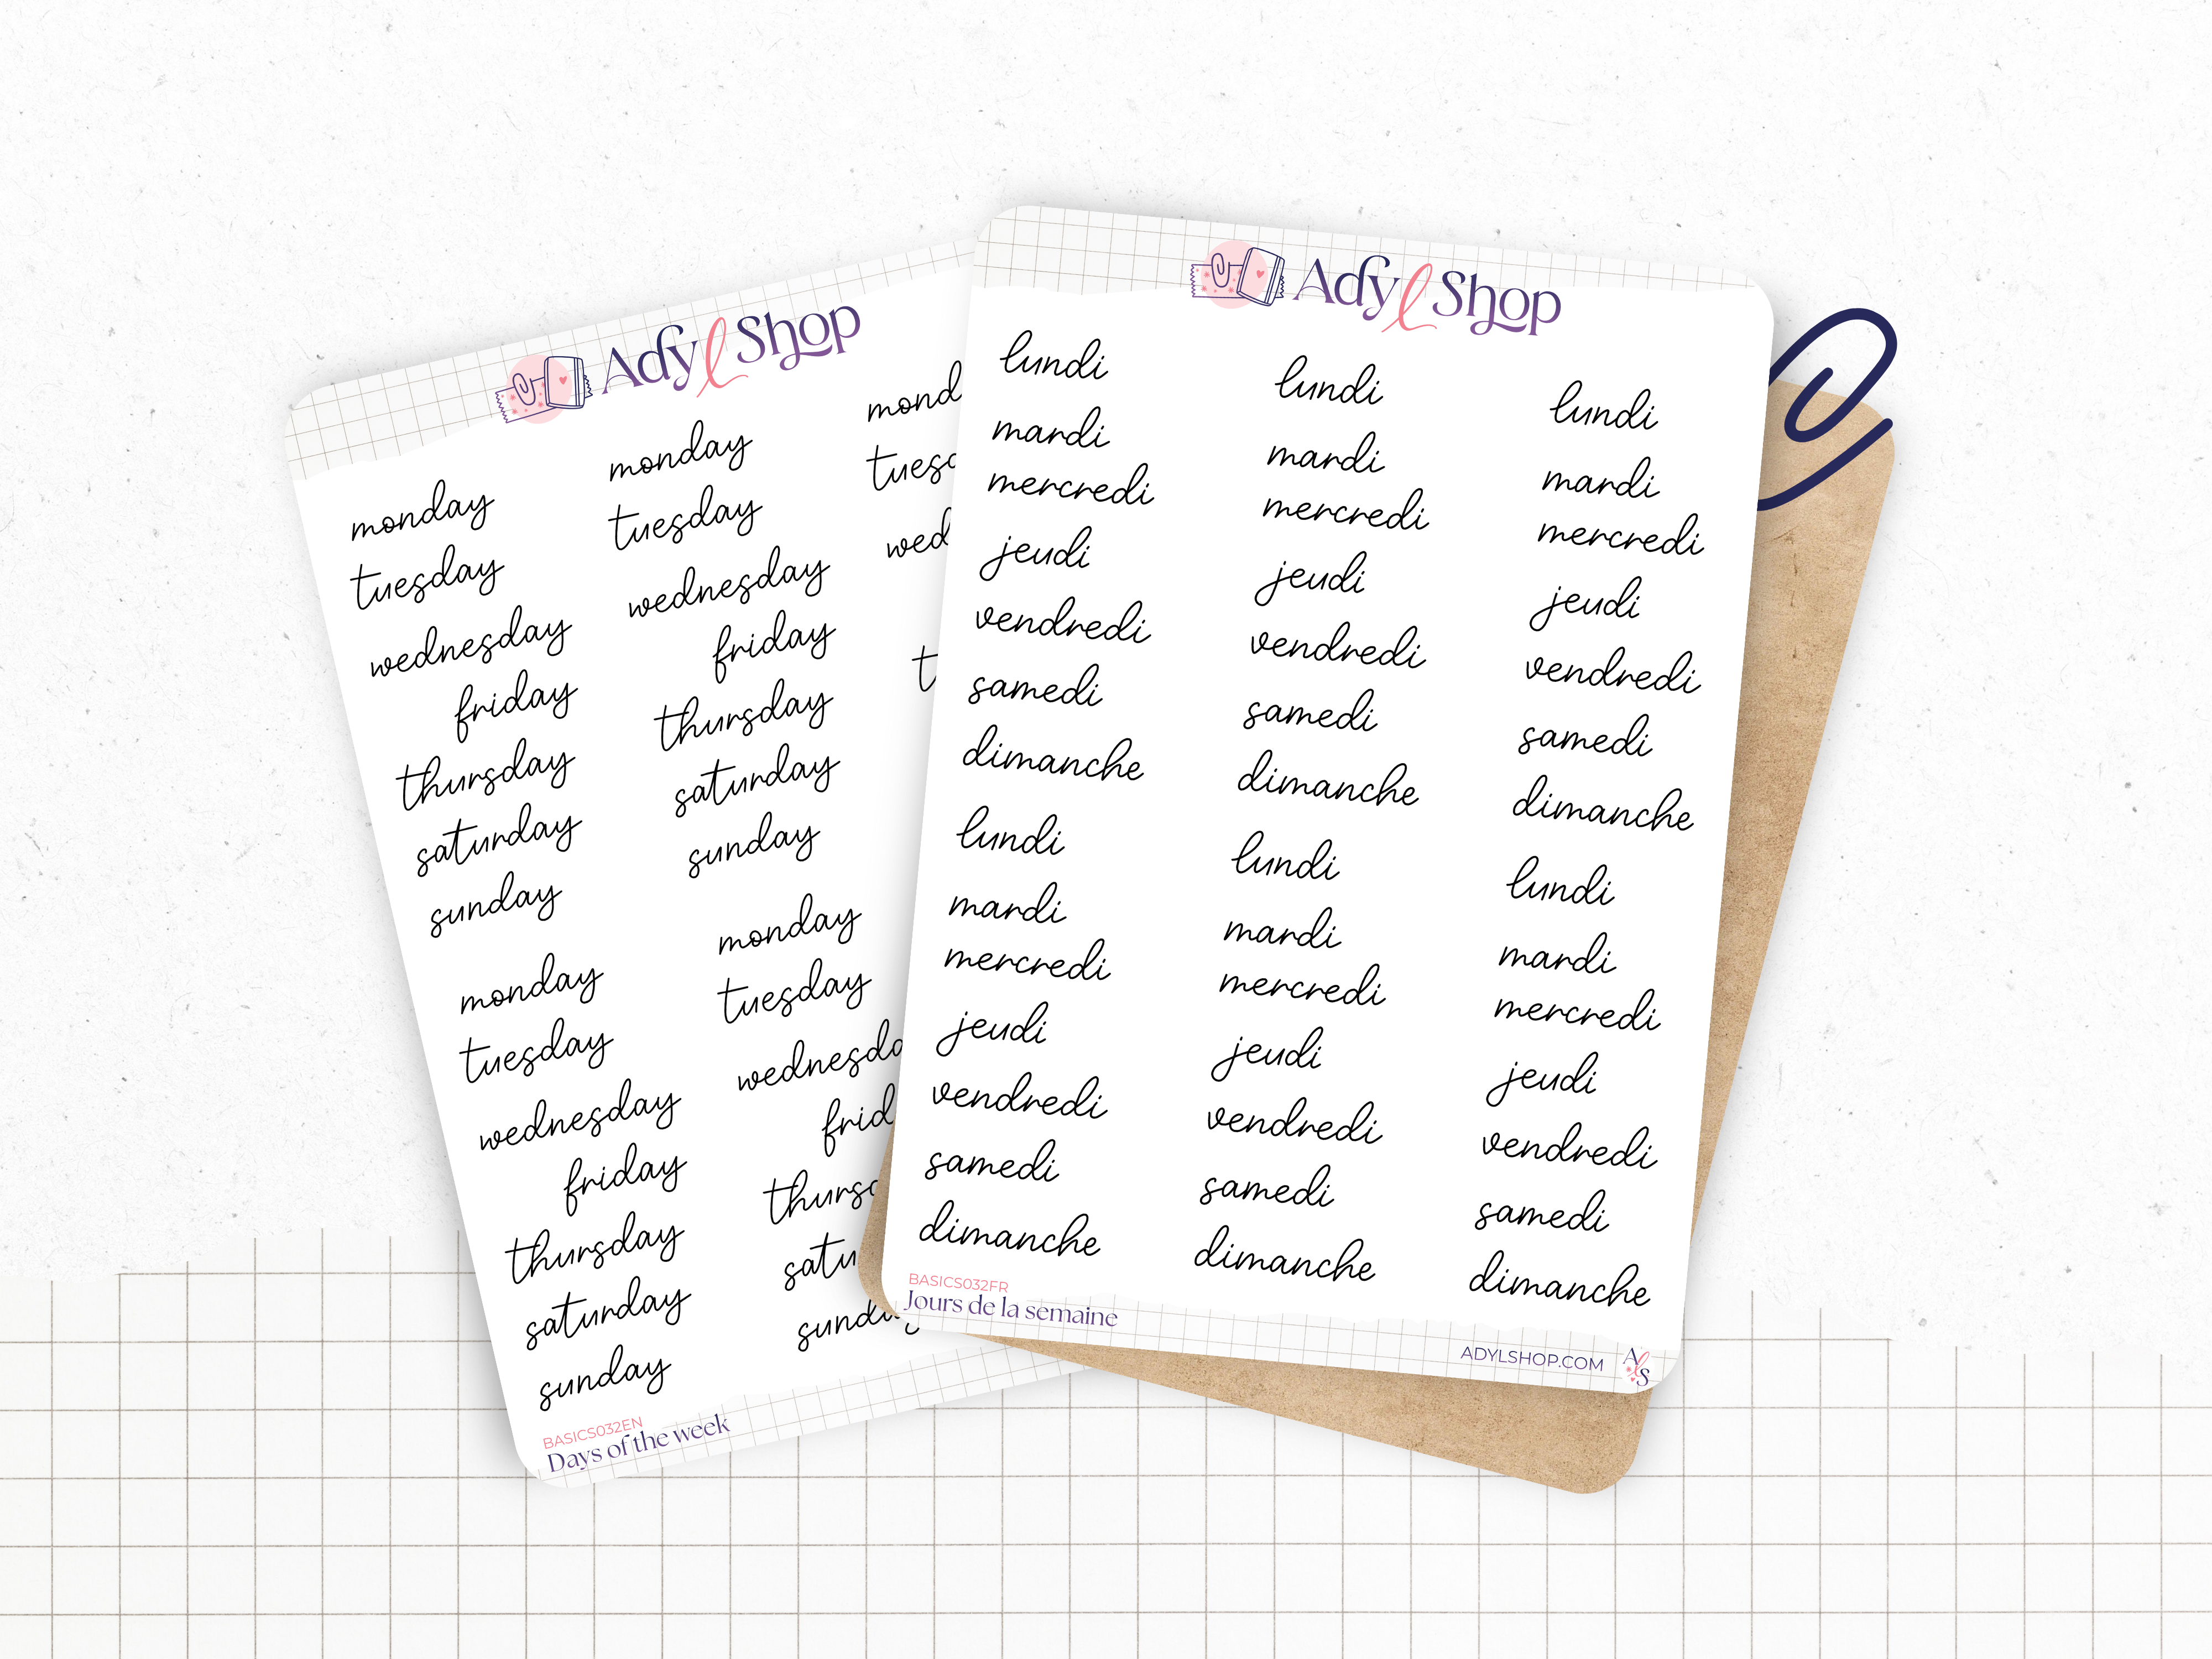 Adyl Shop
monday monday mond
tuesday tuesday tuesd
wednesday wednesday wed
friday friday
thursday thursday t
saturday saturday
sunday sunday
monday monday
tuesday tuesday
wednesday wednesda
friday frid
thursday thursd
saturday satu
sunday sunday
BASICS032EN
Days of the week
Adyl Shop
lundi lundi lundi
mardi mardi mardi
mercredi mercredi mercredi
jeudi jeudi jeudi
vendredi vendredi vendredi
samedi samedi samedi
dimanche dimanche dimanche
lundi lundi lundi
mardi mardi mardi
mercredi mercredi mercredi
jeudi jeudi jeudi
vendredi vendredi vendredi
samedi samedi samedi
dimanche dimanche dimanche
BASICS032FR
Jours de la semaine
ADYLSHOP.COM
AlS